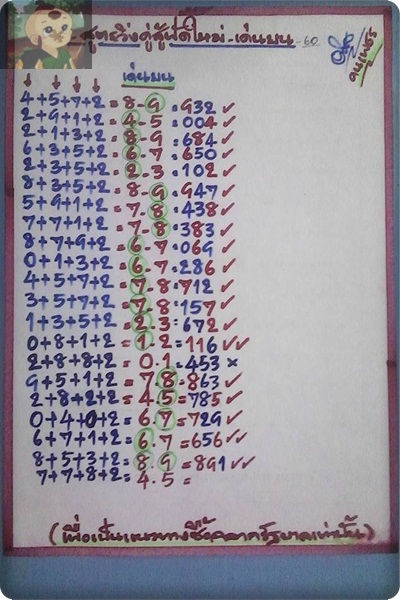 สูตรวิ่งคู่สู้ฟัดใหม่-เด่นบน-60
คนเพชร
↓ ↓ ↓ ↓ เด่นบน
4+5+7+2=8-9=932 ✓
2+9+1+2=4-5=004 ✓
2+1+3+2=8-9=684 ✓
6+3+5+2=6-7=650 ✓
2+3+5+2=2-3=102 ✓
8+3+5+2=8-9=947 ✓
5+9+1+2=7.8=438 ✓
7+7+1+2=7-8=383 ✓
8+7+9+2=6-7=069 ✓
0+1+3+2=6.7=286 ✓
4+5+7+2=7.8=712 ✓
3+5+7+2=7.8=157 ✓
1+3+5+2=2.3=672 ✓
0+8+1+2=1.2=116 ✓✓
2+8+8+2=0.1=453 ×
9+5+1+2=7.8=863 ✓
2+8+2+2=4.5=785 ✓
0+4+0+2=6.7=729 ✓
6+7+1+2=6.7=656 ✓✓
8+5+3+2=8.9=891 ✓✓
7+7+8+2=4.5=
(เพื่อเป็นแนวทางซื้อสลากรัฐบาลเท่านั้น)